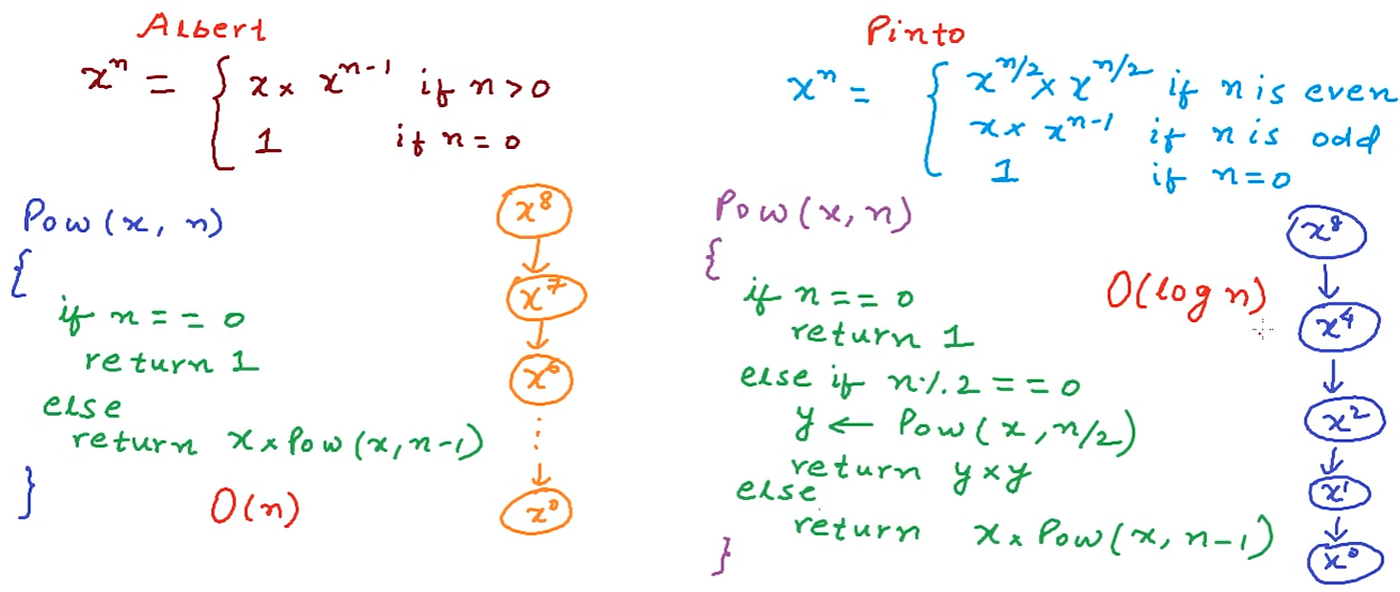 Albert
xⁿ = { x × xⁿ⁻¹ if n > 0
1 if n = 0
Pow(x, n)
{
if n == 0
return 1
else
return x × Pow(x, n-1)
}
O(n)
x⁸
x⁷
x⁶
⋮
x⁰
Pinto
xⁿ = { x^(n/2) × x^(n/2) if n is even
x × xⁿ⁻¹ if n is odd
1 if n=0
Pow(x, n)
{
if n == 0
return 1
else if n%2 == 0
y ← Pow(x, n/2)
return y×y
else
return x × Pow(x, n-1)
}
O(log n)
x⁸
x⁴
x²
x¹
x⁰